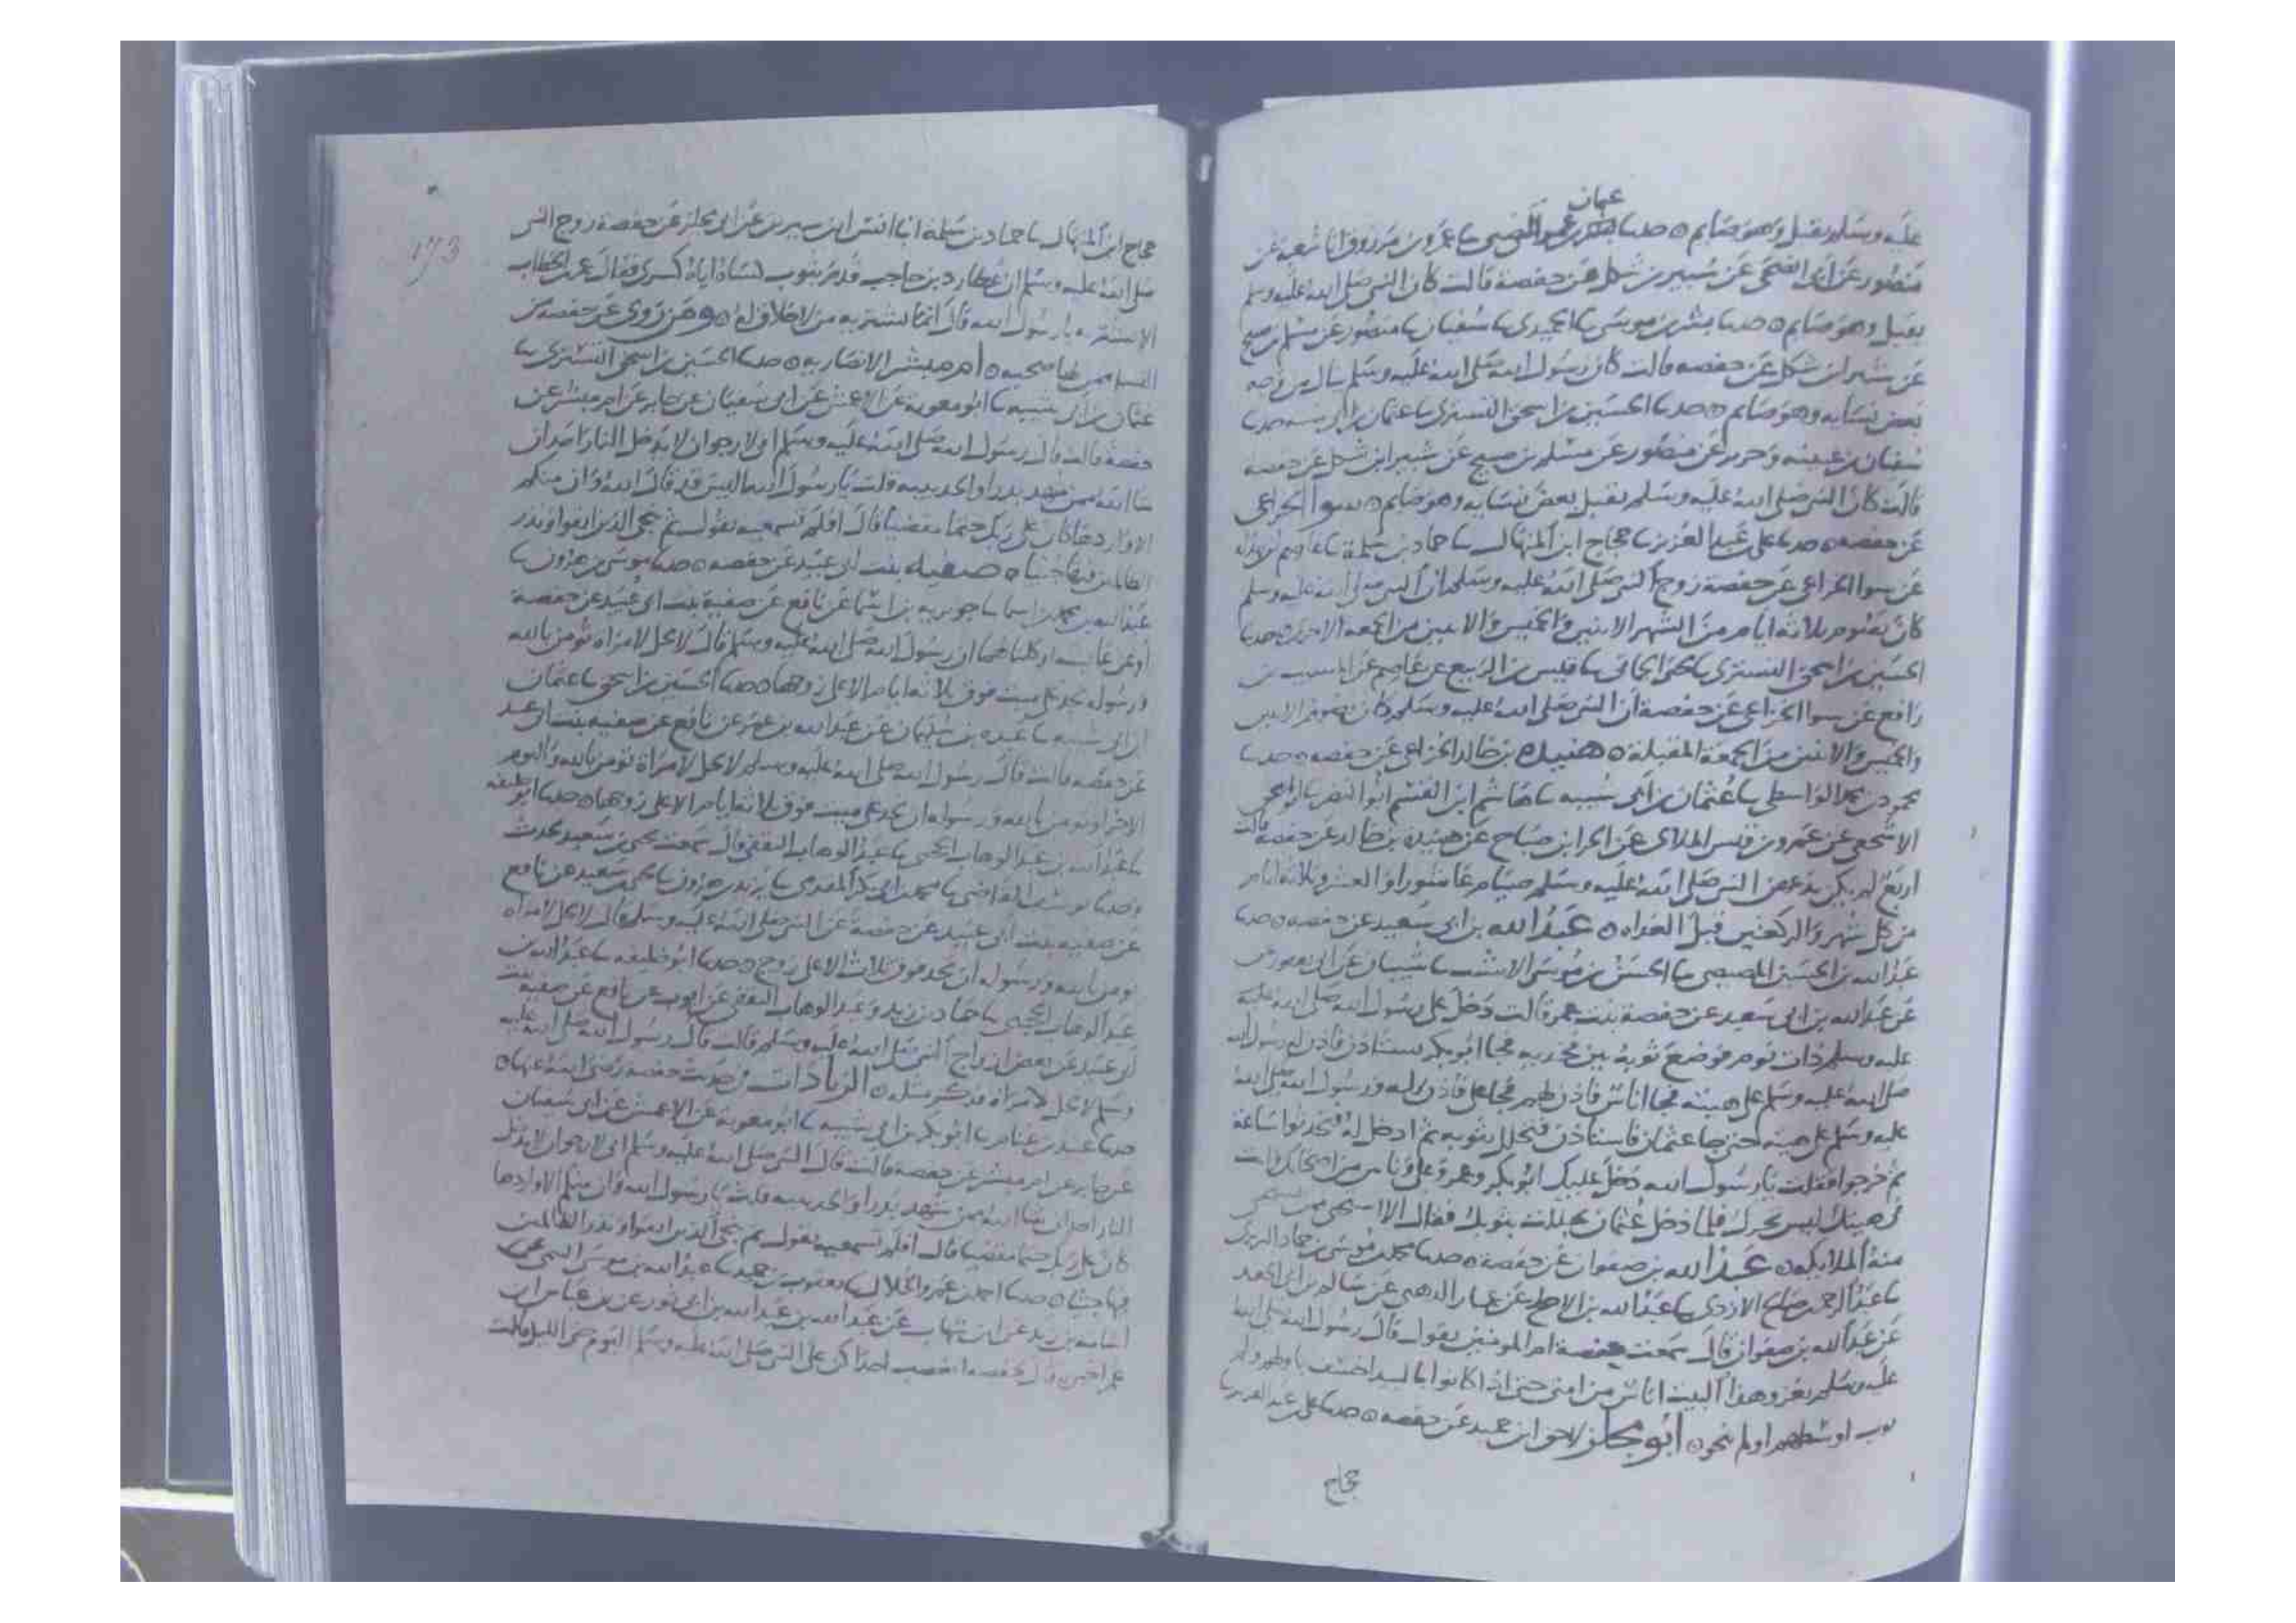 عثمان
عليه وسلم يقبل وهو صايم ٥ حدثنا الضبي ثنا عمرو بن مرزوق انا شعبة عن
منصور عن ابى الضحى عن شتير بن شكل عن حفصة قالت كان النبى صلى الله عليه وسلم
يقبل وهو صايم ٥ حدثنا بشر بن موسى ثنا الحميدى ثنا سفيان ثنا منصور عن مسلم بن صبيح
عن شتير بن شكل عن حفصه قالت كان رسول الله صلى الله عليه وسلم ينال من وجه
بعض نسايه وهو صايم ٥ حدثنا الحسين بن اسحق التسترى ثنا عثمان بن ابى شيبه حدثنا
سفيان بن عيينه وجرير عن منصور عن مسلم بن صبيح عن شتير ابن شكل عن حفصة
قالت كان النبى صلى الله عليه وسلم يقبل بعض نسايه وهو صايم ٥ سوا الخزاعى
عن حفصه ٥ حدثنا على بن عبد العزيز ثنا حجاج ابن المنهال ثنا حماد بن سلمة ثنا عاصم بن بهدلة
عن سوا الخزاعى عن حفصة زوج النبى صلى الله عليه وسلم ان النبى صلى الله عليه وسلم
كان يصوم ثلاثه ايام من الشهر الاثنين والخميس والاثنين من الجمعه الاخرى ٥ حدثنا
الحسين بن اسحق التسترى ثنا يحيى الحمانى ثنا قيس بن الربيع عن عاصم عن المسيب بن
رافع عن سوا الخزاعى عن حفصة ان النبى صلى الله عليه وسلم كان يصوم الاثنين
والخميس والاثنين من الجمعة المقبلة ٥ هنيدة بن خالد الخزاعى عن حفصه ٥ حدثنا
محمود بن محمد الواسطى ثنا عثمان بن ابى شيبه ثنا هاشم ابن القسم ابو النضر ثنا ابو اسحق
الاشجعى عن عمرو بن قيس الملائى عن الحر ابن صباح عن هنيدة بن خالد عن حفصة قالت
اربع لم يكن يدعهن النبى صلى الله عليه وسلم صيام عاشورا والعشر وثلاثة ايام
من كل شهر والركعتين قبل الغداه ٥ عبد الله بن ابى سعيد عن حفصه ٥ حدثنا
عبد الله بن الحسين المصيصى ثنا الحسن بن موسى الاشيب ثنا شيبان عن ابى يعفور
عن عبد الله بن ابى سعيد عن حفصة بنت عمر قالت دخل على رسول الله صلى الله عليه
عليه وسلم ذات يوم فوضع ثوبه بين فخذيه فجا ابو بكر يستاذن فاذن له رسول الله
صلى الله عليه وسلم على هيئته فجا اناس فاذن لهم فجا على فاذن له ورسول الله صلى الله
عليه وسلم على هيئته حتى جا عثمان فاستاذن فتجلل بثوبه ثم ادخل له فتحدثوا ساعة
ثم خرجوا فقلت يا رسول الله دخل عليك ابو بكر وعمر وعلى وناس من اصحابك وانت
كهيئتك ليس تحرك فلما دخل عثمان تجللت بثوبك فقال الا استحيى ممن تستحى
منه الملايكة ٥ عبد الله بن صفوان عن حفصة ٥ حدثنا محمد بن موسى بن حماد البربرى
ثنا عبد الرحمن بن صالح الازدى ثنا عبد الله بن الاجلح عن عمار الدهنى عن سالم بن ابى الجعد
عن عبد الله بن صفوان قال سمعت حفصة ام المومنين يقول قال رسول الله صلى الله
عليه وسلم يغزو هذا البيت اناس من امتى حتى اذا كانوا بالبيدا خسف باولهم ولم
اوسطهم او لم ينجو ٥ ابو مجلز لاحق ابن حميد عن حفصه ٥ حدثنا على بن عبد العزيز ثنا
حجاج
173
حجاج ابن المنهال ثنا حماد بن سلمة انا انس ابن سيرين عن ابى مجلز عن حفصة زوج النبى
صلى الله عليه وسلم ان عطارد بن حاجب قدم بثوب كساه اياه كسرى فقال عمر بن الخطاب
الا نشتريه يا رسول الله قال انما يشتريه من لا خلاق له ٥ ومن روى عن حفصه من
النسا ممن لها صحبه ٥ ام مبشر الانصاريه ٥ حدثنا الحسين بن اسحق التسترى ثنا
عثمان بن ابى شيبه ثنا ابو معوية عن الاعمش عن ابى سفيان عن جابر عن ام مبشر عن
حفصة قالت قال رسول الله صلى الله عليه وسلم انى لارجو ان لا يدخل النار احد ان
شا الله ممن شهد بدرا والحديبيه قلت يا رسول الله اليس قد قال الله وان منكم
الا واردها كان على ربك حتما مقضيا قال افلم تسمعيه يقول ثم ننجى الذين اتقوا ونذر
الظالمين فيها جثيا ٥ صفية بنت ابى عبيد عن حفصه ٥ حدثنا موسى بن هرون ثنا
عبد الله بن محمد بن اسما ثنا جويريه بن اسما عن نافع عن صفية بنت ابى عبيد عن حفصة
او عن عايشه او كلتاهما ان رسول الله صلى الله عليه وسلم قال لا يحل لامراة تومن بالله
ورسوله تحد على ميت فوق ثلاثة ايام الا على زوجها ٥ حدثنا الحسين بن اسحق ثنا عثمان
ابن ابى شيبه ثنا عبده بن سليمان عن عبد الله بن عمر عن نافع عن صفيه بنت ابى عبيد
عن حفصه قالت قال رسول الله صلى الله عليه وسلم لا يحل لامراة تومن بالله واليوم
الاخر او تومن بالله ورسوله ان تحد على ميت فوق ثلاثة ايام الا على زوجها ٥ حدثنا ابو خليفه
ثنا عبد الله بن عبد الوهاب الحجبى ثنا عبد الوهاب الثقفى قال سمعت يحيى بن سعيد يحدث
وحدثنا يوسف القاضى ثنا محمد بن ابى بكر المقدمى ثنا يزيد بن هرون ثنا يحيى بن سعيد عن نافع
عن صفيه بنت ابى عبيد عن حفصة عن النبى صلى الله عليه وسلم قال لا يحل لامراه
تومن بالله ورسوله ان تحد فوق ثلاث الا على زوج ٥ حدثنا ابو خليفه ثنا عبد الله بن
عبد الوهاب الحجبى ثنا حماد بن زيد وعبد الوهاب الثقفى عن ايوب عن نافع عن صفيه بنت
ابى عبيد عن بعض ازواج النبى صلى الله عليه وسلم قالت قال رسول الله صلى الله عليه
وسلم لا يحل لامراة فذكر مثله ٥ الزيادات من حديث حفصه رضى الله عنها ٥
حدثنا عبيد بن غنام ثنا ابو بكر بن ابى شيبه ثنا ابو معوية عن الاعمش عن ابى سفيان
عن جابر عن ام مبشر عن حفصة قالت قال النبى صلى الله عليه وسلم انى لارجو ان لا يدخل
النار احد ان شا الله ممن شهد بدرا والحديبيه قلت يا رسول الله وان منكم الا واردها
كان على ربك حتما مقضيا قال افلم تسمعيه يقول ثم ننجى الذين اتقوا ونذر الظالمين
فيها جثيا ٥ حدثنا احمد بن عمرو الخلال ثنا يعقوب بن حميد ثنا عبد الله بن موسى التيمى عن
اسامه بن زيد عن ابن شهاب عن عبيد الله بن عبد الله بن ابى ثور عن ابن عباس ان
عمر اخبره قال لحفصه اتغضب احداكن على النبى صلى الله عليه وسلم اليوم حتى الليل قالت